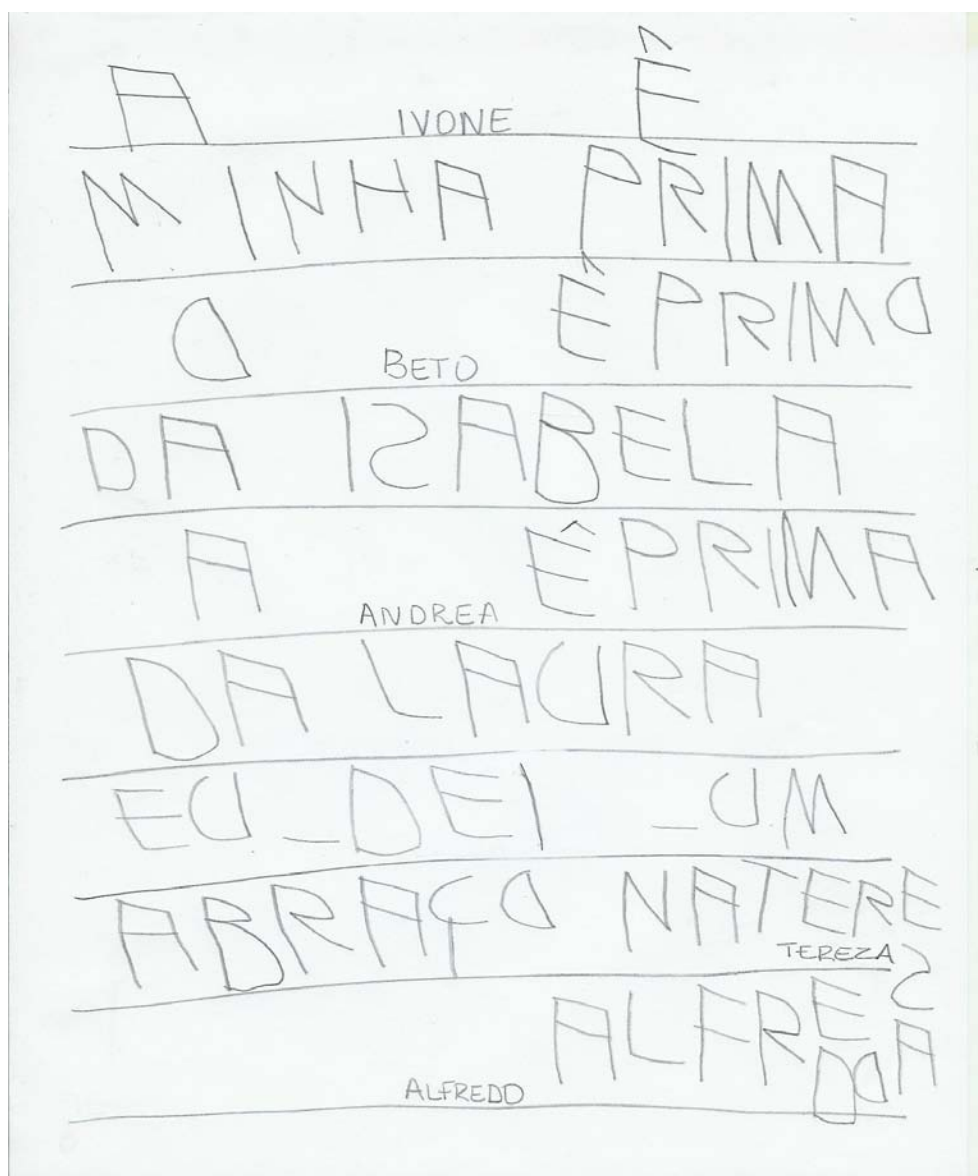 A IVONE Ê
MINHA PRIMA
O BETO É PRIMO
DA ISABELA
A ANDREA Ê PRIMA
DA LAURA
EU_DEI _UM
ABRAÇO NA TERESA
TEREZA
ALFREDO
ALFREDO